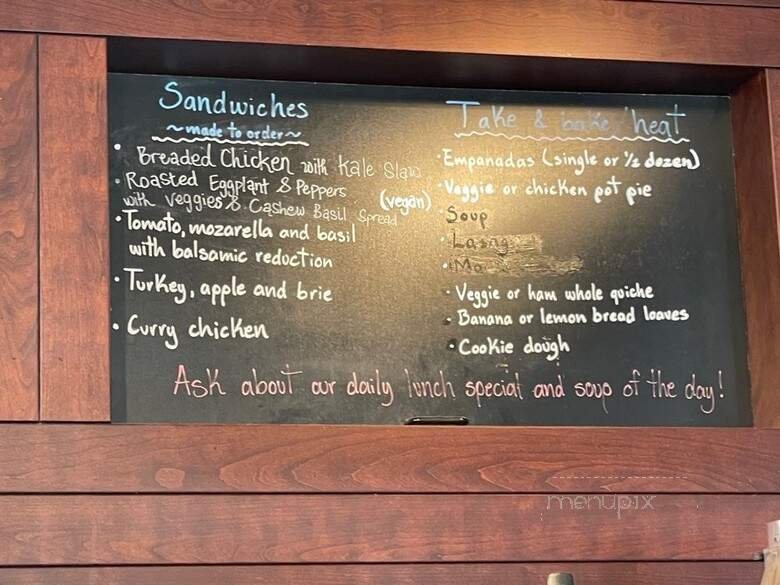 Sandwiches
~made to order~
• Breaded Chicken with Kale Slaw
• Roasted Eggplant & Peppers
with veggies & Cashew Basil Spread (vegan)
• Tomato, mozarella and basil
with balsamic reduction
• Turkey, apple and brie
• Curry chicken
Take & bake/heat
• Empanadas (single or 1/2 dozen)
• Veggie or chicken pot pie
• Soup
• Lasag
• Veggie or ham whole quiche
• Banana or lemon bread loaves
• Cookie dough
Ask about our daily lunch special and soup of the day!
menupix